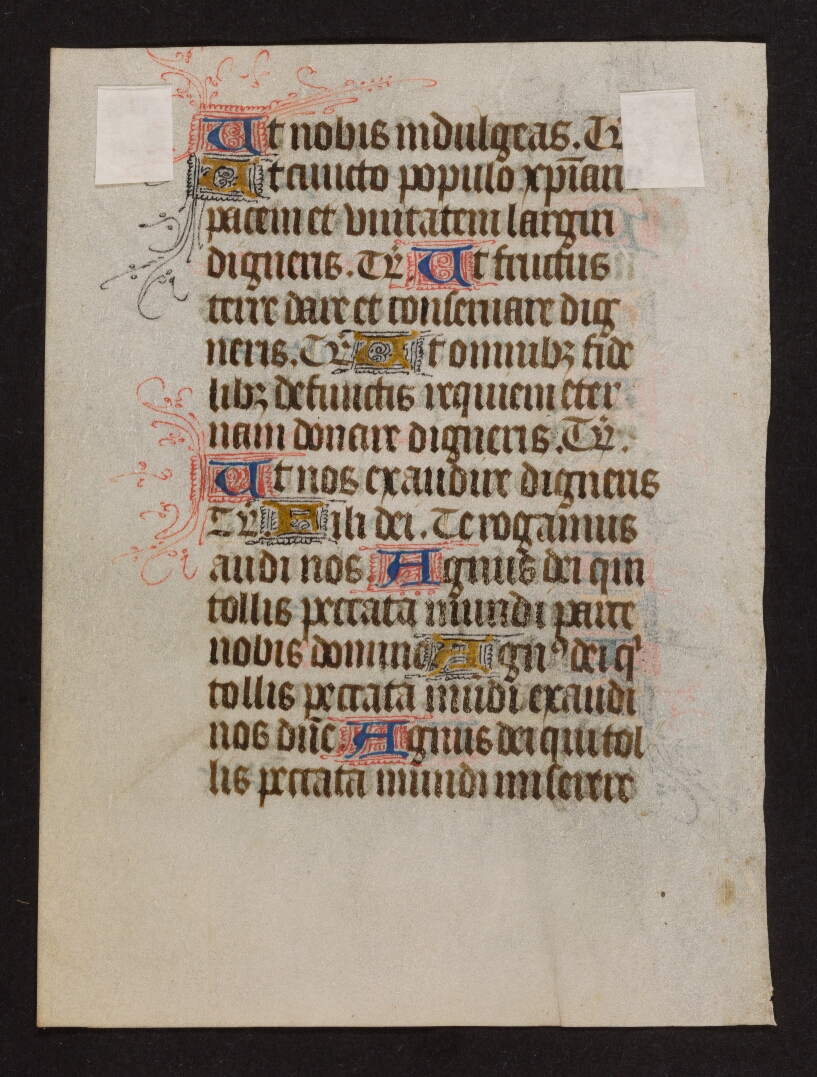 Ut nobis indulgeas. Te
Ut cuncto populo xp̄ian
pacem et vnitatem largiri
digneris. Te r̄. Ut fructus
terre dare et conseruare dig
neris. Te r̄ Ut omnibꝫ fide
libꝫ defunctis requiem eter
nam donare digneris. Te r̄.
Ut nos exaudire digneris
Te r̄. Fili dei. Te rogamus
audi nos. Agnus dei qui
tollis peccata mundi parce
nobis domine Agnꝰ dei qͥ
tollis peccata mūdi exaudi
nos dn̄e. Agnus dei qui tol
lis peccata mundi miserere